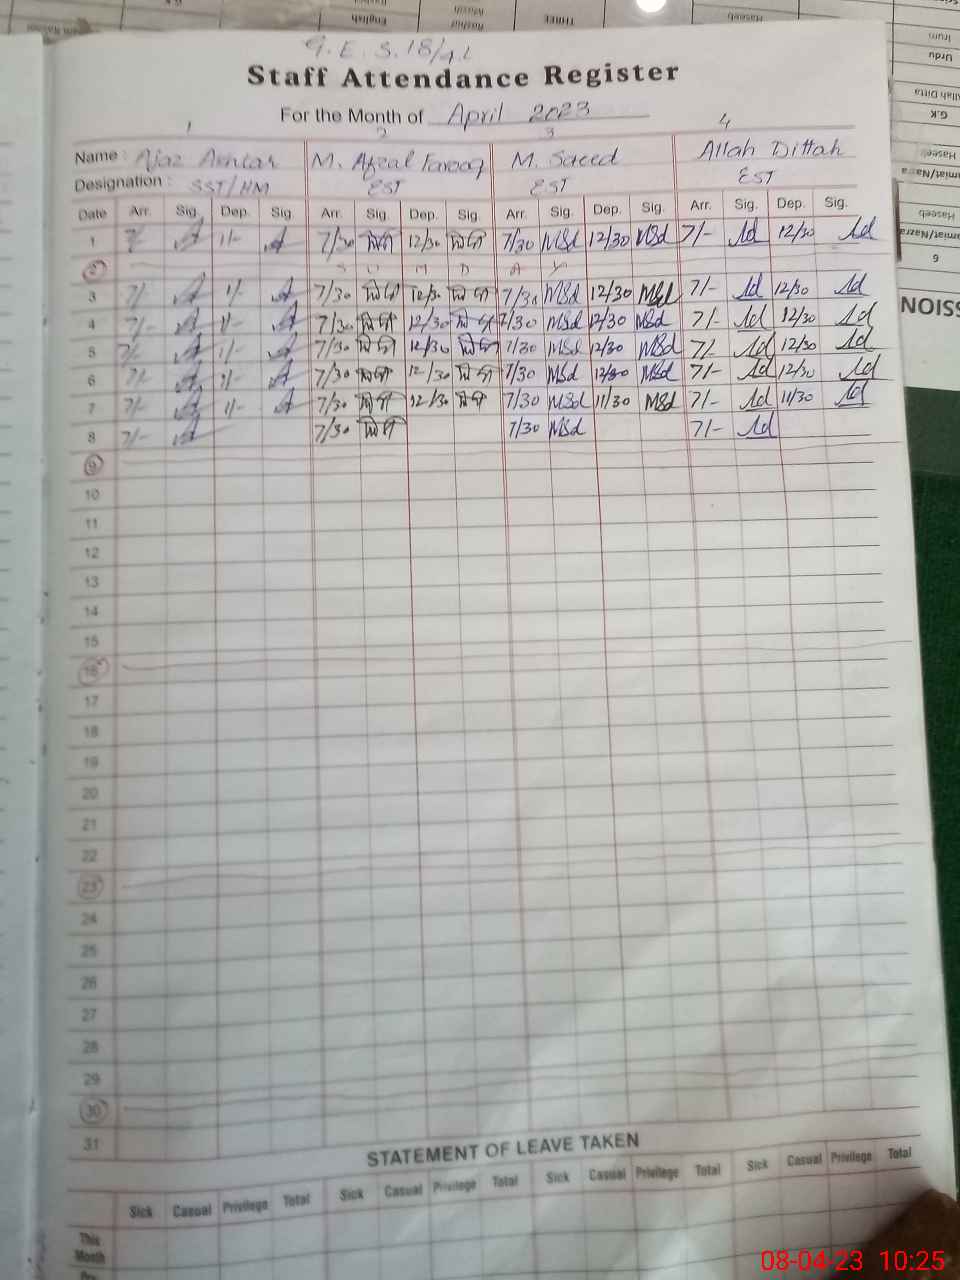 G. E. S. 18/4.L
Staff Attendance Register
For the Month of April 2023
1 2 3 4
Name : Ajaz Akhtar M. Afzal Farooq M. Saeed Allah Dittah
Designation : SST/HM EST EST EST
Date Arr. Sig. Dep. Sig. Arr. Sig. Dep. Sig. Arr. Sig. Dep. Sig. Arr. Sig. Dep. Sig.
1 7/- 1/- 7/30 12/30 7/30 MSd 12/30 MSd 7/- Ad 12/30 Ad
2 S U N D A Y
3 7/- 1/- 7/30 12/30 7/30 MSd 12/30 MSd 7/- Ad 12/30 Ad
4 7/- 1/- 7/30 12/30 7/30 MSd 12/30 MSd 7/- Ad 12/30 Ad
5 7/- 1/- 7/30 12/30 7/30 MSd 12/30 MSd 7/- Ad 12/30 Ad
6 7/- 1/- 7/30 12/30 7/30 MSd 12/30 MSd 7/- Ad 12/30 Ad
7 7/- 1/- 7/30 12/30 7/30 MSd 11/30 MSd 7/- Ad 11/30 Ad
8 7/- 7/30 7/30 MSd 7/- Ad
9
10
11
12
13
14
15
16
17
18
19
20
21
22
23
24
25
26
27
28
29
30
31
STATEMENT OF LEAVE TAKEN
Sick Casual Privilege Total Sick Casual Privilege Total Sick Casual Privilege Total Sick Casual Privilege Total
This
Month
THREE
English
Haseeb
Urdu
G.K
Haseeb
Haseeb
6
08-04-23 10:25